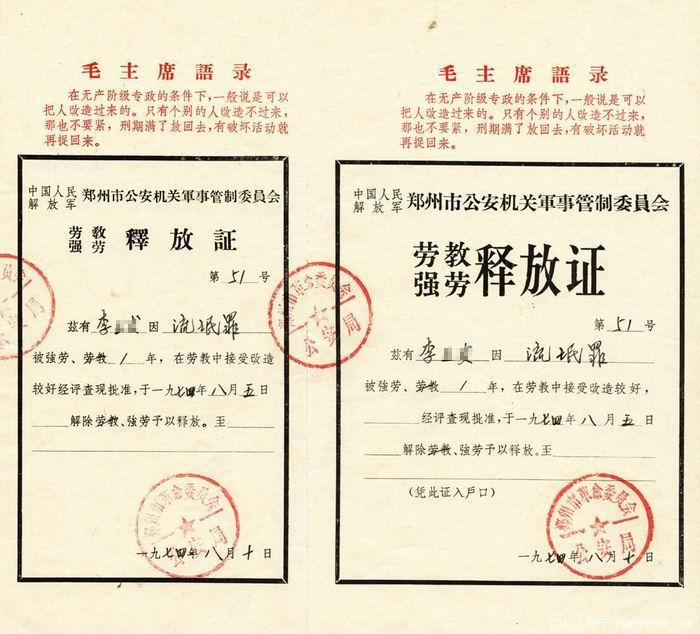 毛主席語录
在无产阶级专政的条件下，一般说是可以
把人改造过来的。只有个别的人改造不过来，
那也不要紧，刑期满了放回去，有破坏活动就
再捉回来。
中国人民
解放军
郑州市公安机关軍事管制委員会
劳教
强劳
釋放証
第51号
兹有李 因流氓罪
被強劳、劳教1年，在劳教中接受改造
较好经评查现批准，于一九七四年八月五日
解除劳教、強劳予以釋放。至
郑州市革命委員会
公安局
一九七四年八月十日
毛主席語录
在无产阶级专政的条件下，一般说是可以
把人改造过来的。只有个别的人改造不过来，
那也不要紧，刑期满了放回去，有破坏活动就
再捉回来。
中国人民
解放军
郑州市公安机关軍事管制委員会
劳教
强劳
释放证
第51号
兹有李 因流氓罪
被強劳、劳教1年，在劳教中接受改造较好，
经评查现批准，于一九七四年八月五日
解除劳教、強劳予以释放。至
（凭此证入戶口）
郑州市革命委員会
公安局
一九七四年八月十日
郑州市革命委員会
公安局